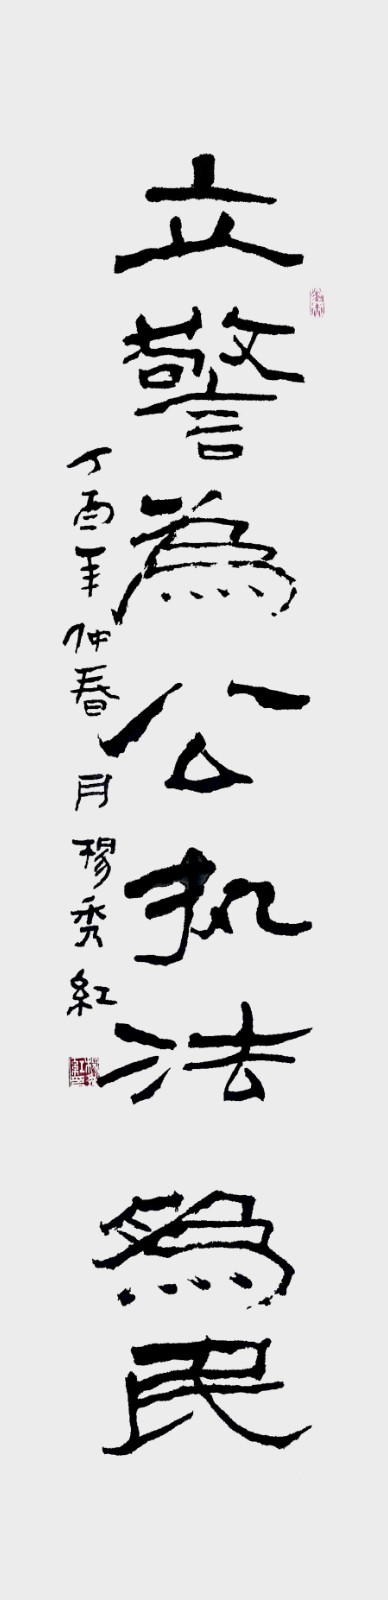 立警為公执法為民
丁酉年仲春月楊秀紅